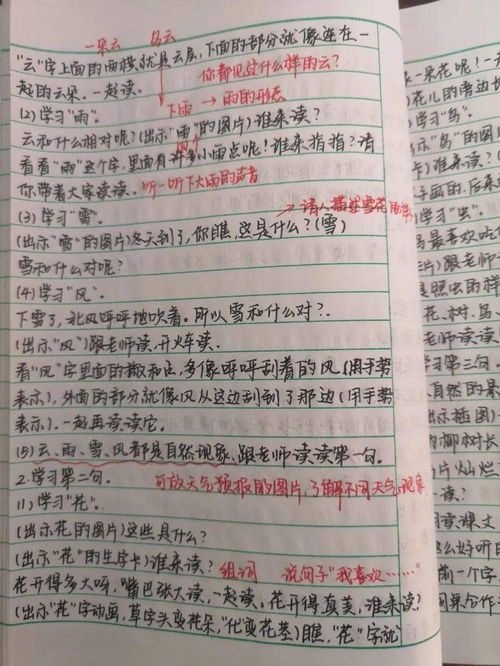 一朵云 乌云
"云"字上面的两横就是云层,下面的部分就像连在一
起的云朵。一起读。
你都见过什么样的云?
(2)学习"雨"。
下雨 → 雨的形态
云和什么相对呢?(出示"雨"的图片)谁来读?
看看"雨"这个字,里面有许多小雨点呢!谁来指指?请
你带着大家读读。
听一听下大雨的声音
(3)学习"雪"。
→ 请人描述雪花
(出示"雪"的图片)冬天到了,你瞧,这是什么?(雪)
雪和什么对呢?
(4)学习"风"。
下雪了,北风呼呼地吹着。所以雪和什么对?
(出示"风")跟老师读,开火车读。
看"风"字里面的撇和点,多像呼呼刮着的风(用手势
表示),外面的部分就像风从这边刮到了那边(用手势
表示)。一起再读读它。
(5)云、雨、雪、风都是自然现象,跟老师读读第一句。
2.学习第二句。
可放天气预报的图片,了解不同天气现象
(1)学习"花"。
(出示花的图片)这些是什么?
(出示"花"的生字卡)谁来读?
组词 说句子"我喜欢……"
花开得多大呀,嘴巴张大读,一起读。花开得真美,谁来读?
(出示"花"字动画,草字头变花朵,"化"变花茎)瞧,"花"字就
一朵花呢!
花儿的旁边
学习"鸟"。
示"鸟"的图
谁来读?
学习"虫"。
最喜欢吃
片)跟老师
花、树、鸟、
老师读读
学习第三句。
自然的景
出示插图)
柳树长
片灿烂
读?
读课文
么好听
前一个字
果合作